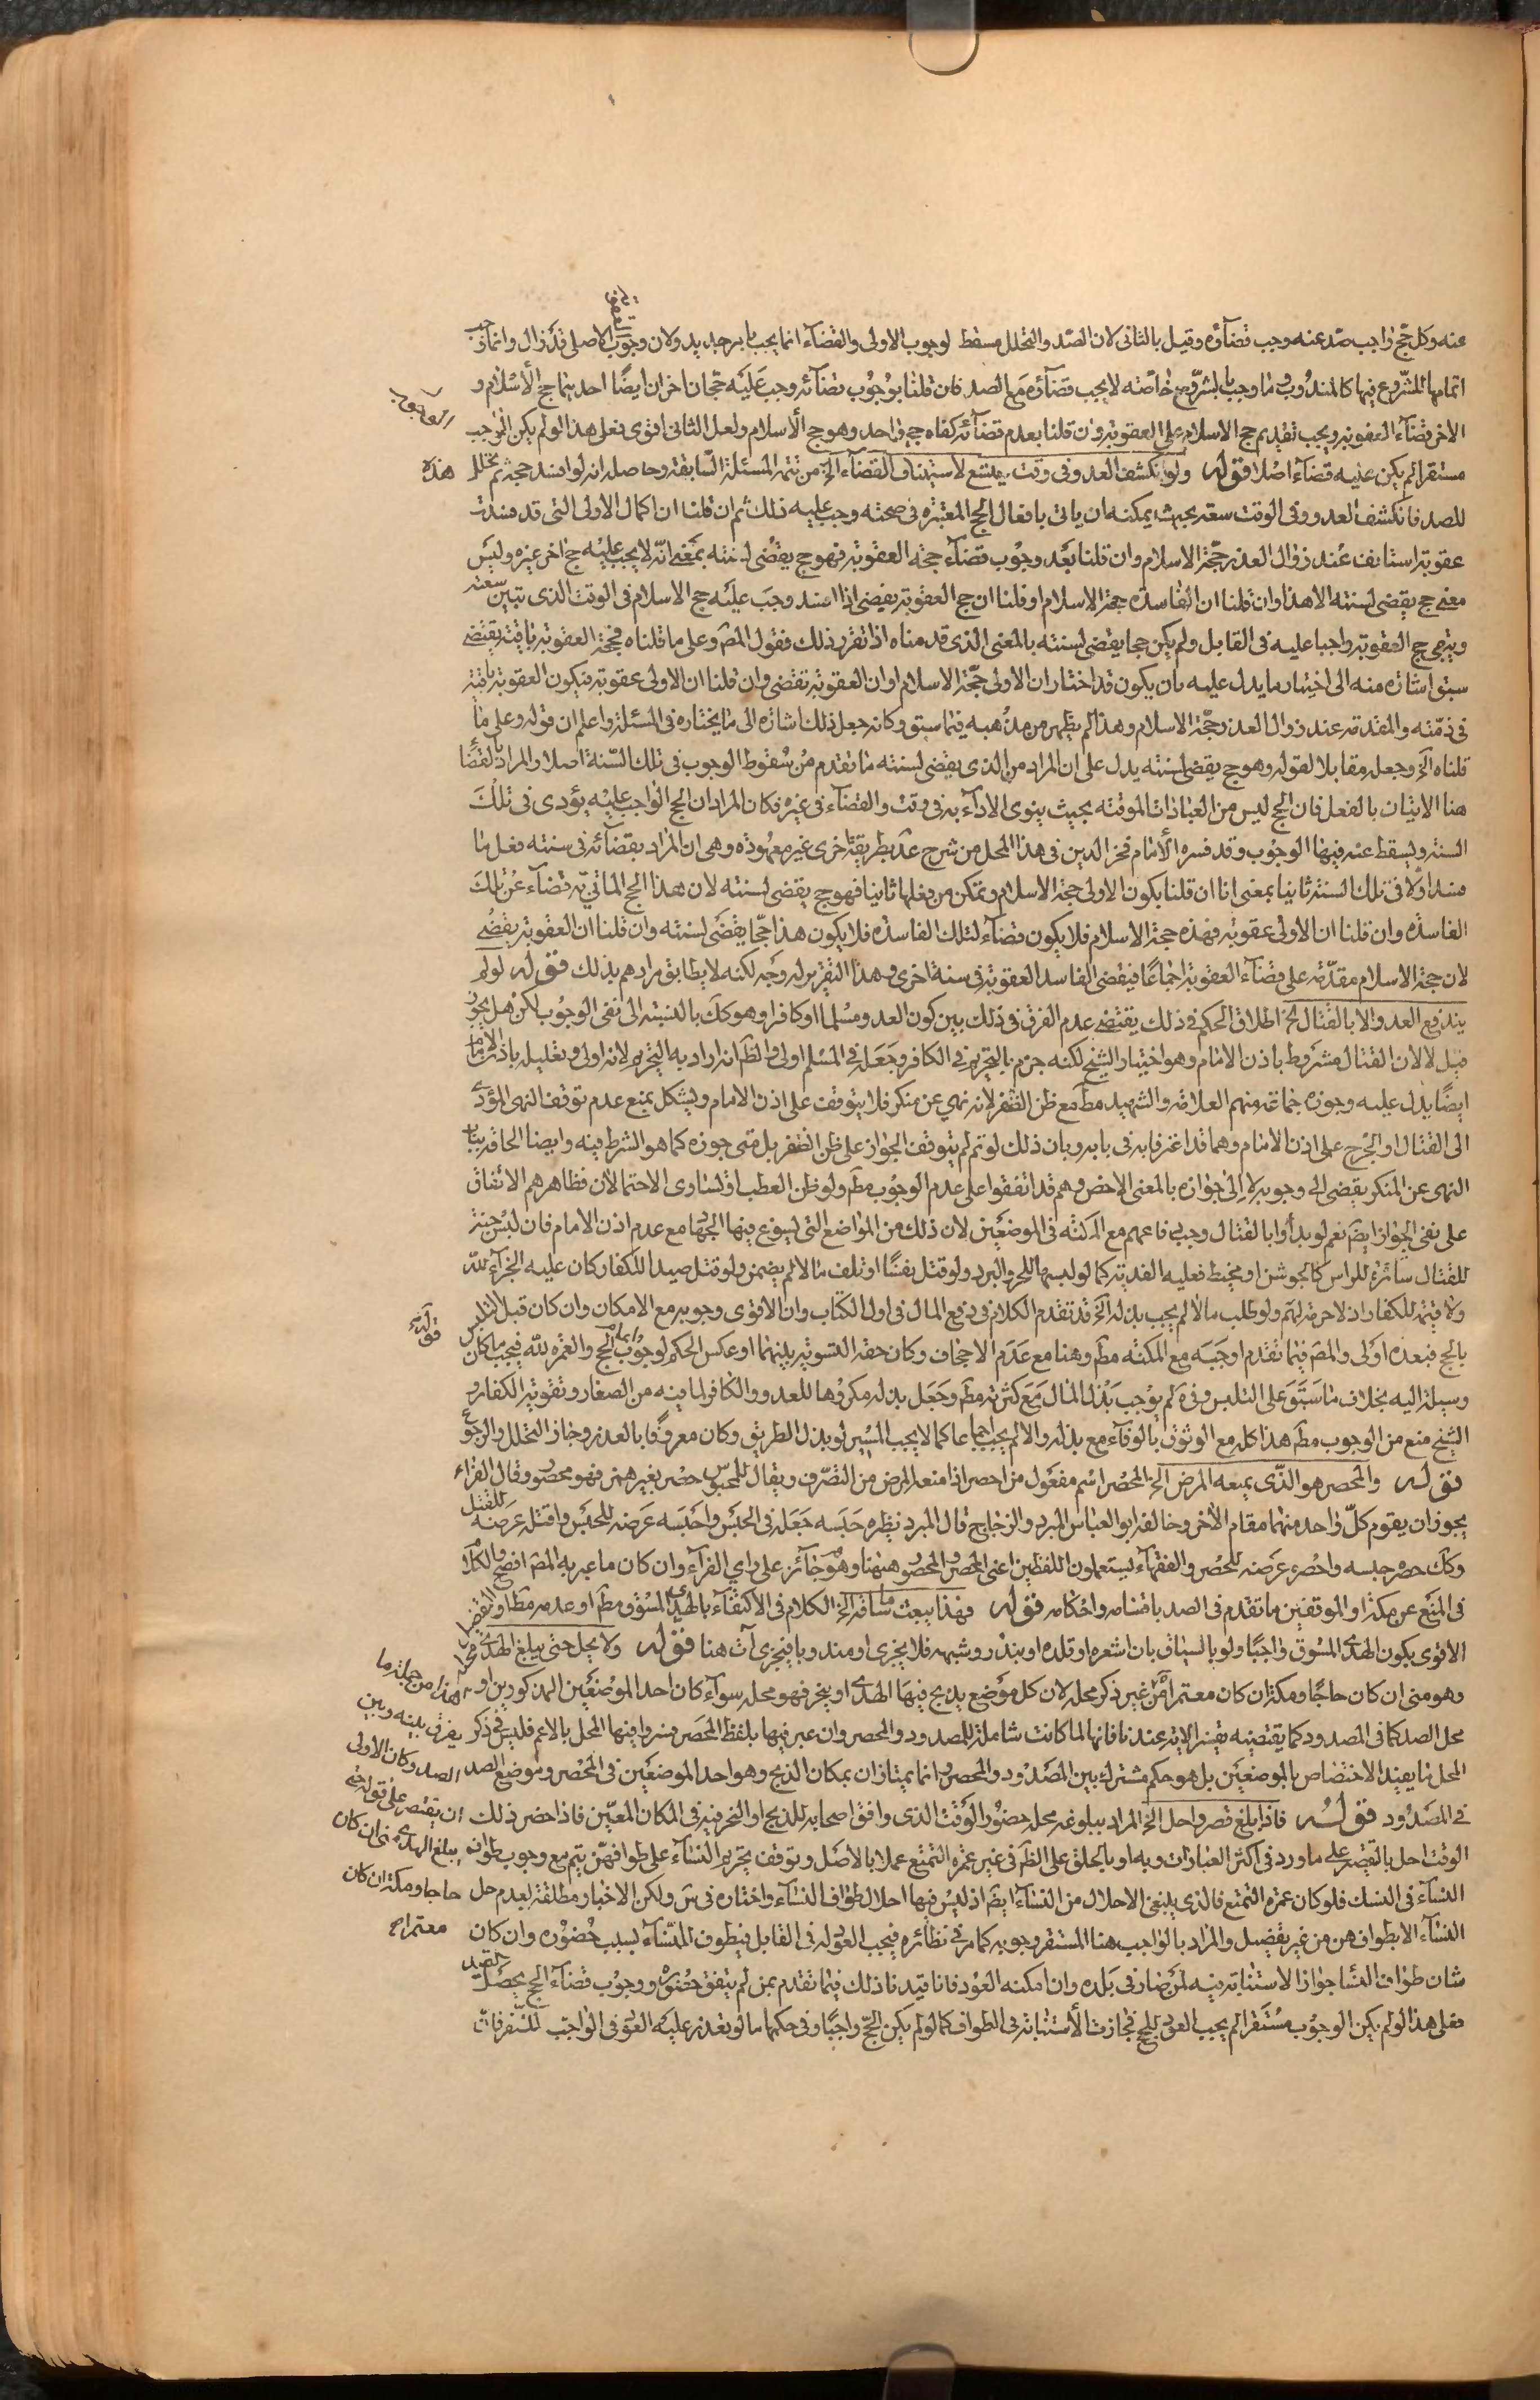 عنه وكل حج واجب صد عنه وجب قضاؤه وقيل بالثانى لان الصد والتحلل مسقط لوجوب الاولى والقضاء انما يجب بامر جديد ولان وجوب الاصلى قد زال وانما وجب
اتمامها للشروع فيها كالمندوب وما وجب بالشروع خاصته لا يجب قضاؤه مع الصد فان قلنا بوجوب قضائه وجب عليه حجان اخران ايضا احديهما حج الاسلام و
الاخر قضاء العقوبه ويجب تقديم حج الاسلام على العقوبه وان قلنا بعدم قضائه كفاه حج واحد وهو حج الاسلام ولعل الثانى اقوى فعلى هذا لو لم يكن الواجب
مستقرا لم يكن عليه قضاء اصلا قوله ولو انكشف العدو فى وقت يتسع لاستيناف القضاء الخ من تتمه المسئله السابقه وحاصله انه لو افسد حجه ثم تحلل هذه
للصد فانكشف العدو وفى الوقت سعه بحيث يمكنه ان ياتى بافعال الحج المعتبره فى صحته وجب عليه ذلك ثم ان قلنا ان اكمال الاولى التى قد فسدت
عقوبة استانف عند زوال العذر حجة الاسلام وان قلنا بعد وجوب قضاء حجه العقوبه فهو حج يقضى لسنته بمعنى انه لا يجب عليه حج اخر غيره وليس
معنى حج يقضى لسنته الا هذا وان قلنا ان الفاسده حجة الاسلام او قلنا ان حج العقوبه يقضى اذا افسد وجب عليه حج الاسلام فى الوقت الذى تبين سعته
وبقى حج العقوبه واجبا عليه فى القابل ولم يكن حجا يقضى لسنته بالمعنى الذى قدمناه اذا تقرر ذلك فقول المص وعلى ما قلناه فحجة العقوبه باقيه يقتضى
سبق اشاره منه الى اختيار ما يدل عليه بان يكون قد اختار ان الاولى حجة الاسلام او ان العقوبه تقضى وان قلنا ان الاولى عقوبه فيكون العقوبه باقيه
فى ذمته والمقدمه عند زوال العذر حجة الاسلام وهذا لم يظهر من مذهبه فيما سبق وكانه جعل ذلك اشاره الى ما يختاره فى المسئله واعلم ان قوله وعلى ما
قلناه الخ وجعله مقابلا لقوله وهو حج يقضى لسنته يدل على ان المراد من الذى يقضى لسنته ما تقدم من سقوط الوجوب فى تلك السنة اصلا والمراد بالقضا
هنا الاتيان بالفعل فان الحج ليس من العبادات الموقته بحيث ينوى الاداء به فى وقت والقضاء فى غيره فكان المراد ان الحج الواجب عليه يؤدى فى تلك
السنه ويسقط عنه فيها الوجوب وقد فسره الامام فخر الدين فى هذا المحل من شرح عد بطريقة اخرى غير معهوده وهى ان المراد بقضائه فى سنته فعل ما
فسد اولا فى تلك السنه ثانيا بمعنى انا ان قلنا بكون الاولى حجة الاسلام وتمكن من فعلها ثانيا فهو حج يقضى لسنته لان هذا الحج الماتى به قضاء عن تلك
الفاسده وان قلنا ان الاولى عقوبه فهذه حجة الاسلام فلا يكون قضاء لتلك الفاسده فلا يكون هذا حجا يقضى لسنته وان قلنا ان العقوبه يقضى
لان حجة الاسلام مقدمه على قضاء العقوبه اجماعا فيقضى الفاسد العقوبه فى سنة اخرى وهذا التقرير له وجه لكنه لا يطابق مرادهم بذلك قوله لو لم
يندفع العدو الا بالقتال الخ اطلاق الحكم فى ذلك يقتضى عدم الفرق فى ذلك بين كون العدو مسلما او كافرا وهو كك بالنسبه الى نفى الوجوب لكن هل يجوز
قيل لا لان القتال مشروط باذن الامام وهو اختيار الشيخ لكنه جزم بالتحريم فى الكافر وجعله فى المسلم اولى والظ انه اراد به التحريم لانه اولى وتعليله باذن الامام
ايضا يدل عليه وجوزه جماعه منهم العلامه والشهيد مط مع ظن الظفر لانه نهى عن منكر فلا يتوقف على اذن الامام ويشكل بمنع عدم توقف النهى المؤدى
الى القتال او الجرح على اذن الامام وهما قد اعترفا به فى بابه وبان ذلك لو تم لم يتوقف الجواز على ظن الظفر بل متى جوزه كما هو الشرط فيه وايضا الحاقه بباب
النهى عن المنكر يقضى الى وجوبه لا الى جوازه بالمعنى الاخص وهم قد اتفقوا على عدم الوجوب مط ولو ظن العطب او تساوى الاحتمالان فظاهرهم الاتفاق
على نفى الجواز ايضا نعم لو بداوا بالقتال وجب دفاعهم مع المكنه فى الموضعين لان ذلك من المواضع التى يسوغ فيها الجهاد مع عدم اذن الامام فان لبس جنة
للقتال ساتره للراس كالجوشن او مخيط فعليه الفديه كما لو لبسها للحر والبرد ولو قتل نفسا او تلف مالا لم يضمن ولو قتل صيدا للكفار كان عليه الجزاء لله
ولا قيمه للكفار اذ لا حرمه لهم ولو طلب مالا لم يجب بذله الخ قد تقدم الكلام فى دفع المال فى اول الكتاب وان الاقوى وجوبه مع الامكان وان كان قبل التلبس قوله
بالحج فبعده اولى والمص فيما تقدم اوجبه مع المكنه مط وهنا مع عدم الاجحاف وكان حقه التسويه بينهما او عكس الحكم لوجوب اتمام الحج والعمره لله فيجب ما كان
وسيلة اليه بخلاف ما سبق على التلبس وفى كره لم يوجب بذل المال مع كثرته مط وجعل بذله مكروها للعدو والكافر لما فيه من الصغار وتقويه الكفار و
الشيخ منع من الوجوب مط هذا كله مع الوثوق بالوفاء مع بذله والا لم يجب اجماعا كما لا يجب المسير لو بذل الطريق وكان معروفا بالغدر وجاز التحلل والرجوع
قوله والمحصر هو الذى يمنعه المرض الخ المحصر اسم مفعول من احصر اذا منعه المرض من التصرف ويقال للمحبوس حصر بغير همز فهو محصور وقال الفراء
يجوز ان يقوم كل واحد منهما مقام الاخر وخالفه ابو العباس المبرد والزجاج قال المبرد نظيره حبسه جعله فى الحبس واحبسه عرضه للحبس واقتله عرضه للقتل
وكك حصره حبسه واحصره عرضه للحصر والفقهاء يستعملون اللفظين اعنى المحصر والمحصور ههنا وهو جائز على راى الفراء وان كان ما عبر به المص افصح والكلام
فى المنع عن مكة او الموقفين ما تقدم فى الصد باقسامه واحكامه قوله فهذا يبعث ما ساقه الخ الكلام فى الاكتفاء بالهدى المسوق مط او عدمه مط او التفصيل
الاقوى بكون الهدى المسوق واجبا ولو بالسياق بان اشعره او قلده او بنذر وشبهه فلا يجزى او مندوبا فيجزى آت هنا قوله ولا يحل حتى يبلغ الهدى محله
وهو منى ان كان حاجا ومكة ان كان معتمرا من غير ذكر محله لان كل موضع يذبح فيها الهدى او ينحر فهو محله سواء كان احد الموضعين المذكورين او هذا من جملة ما
محل الصد كما فى المصدود كما يقتضيه تفسير الايه عندنا فانها لما كانت شاملة للمصدود والمحصر وان عبر فيها بلفظ الحصر فسروا فيها المحل بالاعم فليس فى ذكر يفرق بينه وبين
المحل ما يفيد الاختصاص بالموضعين بل هو حكم مشترك بين المصدود والمحصر وانما يمتازان بمكان الذبح وهو احد الموضعين فى المحصر وموضع الصد الصد وكان الاولى
فى المصدود قوله فاذا بلغ قصر واحل الخ المراد ببلوغه محله حضور الوقت الذى وافق اصحابه للذبح او النحر فيه فى المكان المعين فاذا حضر ذلك ان يقتصر على قوله حتى
الوقت احل بالتقصير على ما ورد فى اكثر العبارات وبه او بالحلق على الظ فى غير عمره التمتع عملا بالاصل وتوقف تحريم النساء على طوافهن يتم مع وجوب طواف يبلغ الهدى منى ان كان
النساء فى النسك فلو كان عمره التمتع فالذى ينبغى الاحلال من النساء ايضا اذ ليس فيها احلال طواف النساء واختاره فى س ولكن الاخبار مطلقه بعدم حل حاجا ومكة ان كان
النساء الا بطوافهن من غير تفصيل والمراد بالواجب هنا المستقر وجوبه كما مر فى نظائره فيجب العود له فى القابل فيطوف للنساء بسبب حضوره وان كان معتمرا
شان طواف النسا جواز الاستنابه فيه لمن صار فى بلده وان امكنه العود فانا قيدنا ذلك فيما تقدم بمن لم يتفق حضوره ووجوب قضاء الحج يحصل القيد
فعلى هذا لو لم يكن الوجوب مستقرا لم يجب العود للحج فجازت الاستنابه فى الطواف كما لو لم يكن الحج واجبا وفى حكمها ما لو تعذر عليه العود فى الواجب المستقر فان